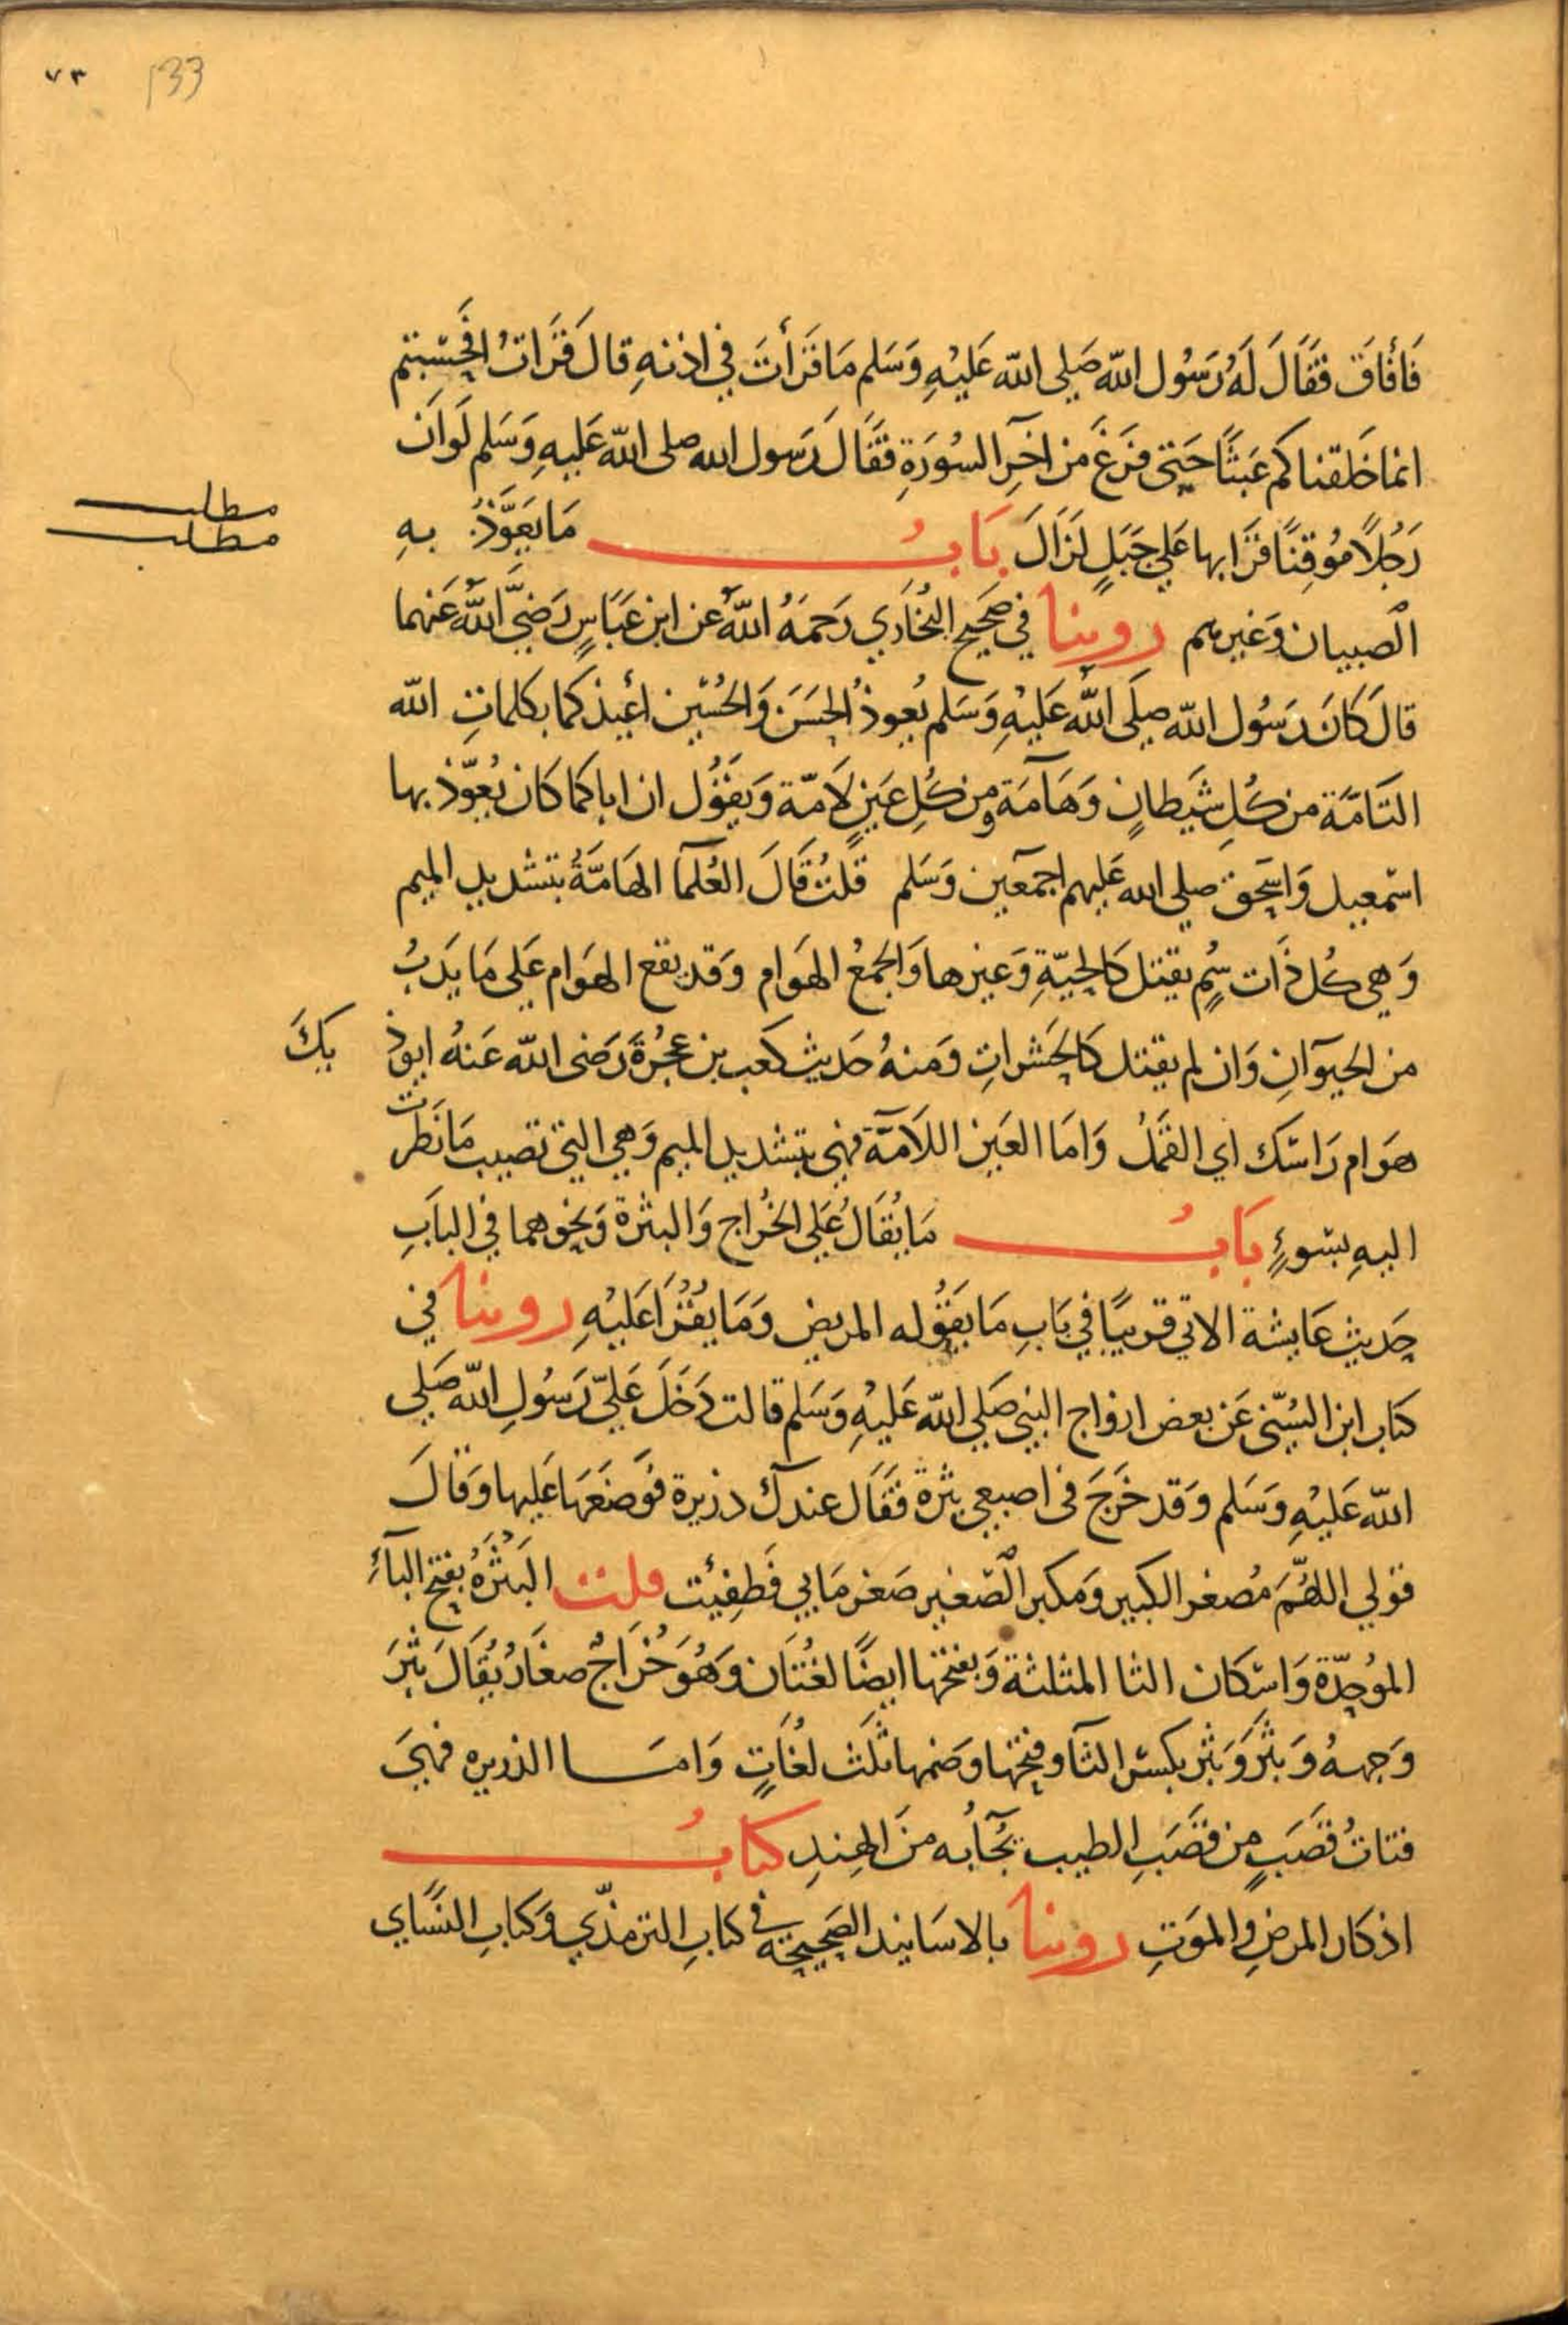 ٧٣ 133
فَأفَاقَ فقَالَ لَهُ رَسُول اللّه صَلي اللّه عَليْهِ وَسَلم مَا قَرَأتَ في اذنهِ قال قَرَاتُ افحَسبتم
انما خَلقناكم عَبَثًا حَتي فرَغَ من اخِرِ السُورَةِ فقَالَ رَسول الله صلى اللّه عَليهِ وَسَلم لَو اَن
رَجُلاً مُوقِنًا قرَا بها عَلي جَبَلٍ لزَالَ بَابُ مَا يُعَوَّذُ بهِ
مطلب
مطلب
الصبيان وَغيرهم روينا في صَحِيح البُخَاري رَحمَهُ اللّهُ عن ابن عَبَاسٍ رَضِيَ اللّهُ عَنهما
قالَ كَانَ رَسُول اللّه صلَى اللّه عَليْهِ وَسَلم يُعوذُ الحَسَنَ وَالحُسَين أعيذكما بكلماتِ اللّه
التَامَّة من كُلِ شَيطانٍ وَهَآمَة ومِن كُلِ عَينٍ لَامّة وَيقَوُل ان اباكما كَان يُعوّذ بها
اسْمعيل وَاسحَق صلي الله عَليهم اجمَعين وَسَلم قلتُ قَالَ العُلمَآ الهَامَّةُ بتشديد الميم
وَهي كُل ذَات سُمٍ يقتل كَالحيّةِ وَغيرها وَالجمعُ الهَوام وَقد يقع الهَوام عَلى مَا يَدَبُ
من الحيوَانِ وَان لم يقتل كَالحَشراتِ وَمنهُ حَديث كعَب بن عجُرَةَ رَضى اللّه عَنهُ ايوذ يكَ
هَوام رَاسَك اي القمَلُ وَامَا العَين اللامَّة فهي بتشديد الميم وَهي التي تصيب مَا نَظرت
اليهِ بسَوءٍ بَابُ مَا يُقَالُ عَلي الخُراج وَالبثرة وَنحوهما في البَابِ
حَديث عَايشة الاتي قريبًا في بَابِ مَا يَقَوُله المريض وَمَا يقُرَا عَليْهِ روينا في
كتاب ابن السُنّي عَن بعض ازواج النبي صَلي اللّه عَليْهِ وَسَلم قالت دَخَلَ عَليّ رَسُولِ اللّه صَلي
اللّه عَليْهِ وَسَلم وَقد خَرَجَ فى اصبعي بثرة فقَال عندك ذريرة فوَضعَهَا عَليها وَقالَ
قولي اللهُمّ مُصغر الكبير وَمكبر الصّغير صَغر مَا بي فَطفِئت قلت البَثرَة بفتح البآءِ
الموُحِدّة وَاسْكان الثا المثلثة وَبفتحها ايضًا لغُتَان وَهُوَ خُرَاجُ صغَارُ يُقَالَ بثرَ
وَجهه وَبثَرَ وَبَثُر بكسْر الثَآ وفتحها وَضمها ثلَث لغُاتٍ وَامَا الذريره فهيَ
فتاتُ قَصَبٍ من قصَبِ الطيب يجَآبُه منَ الهندِ كتابُ
اذكار المرضِ والموَتِ روينا بالاسَانيد الصَحيحَة في كتابِ الترمذّي وَكتابِ النسَاي